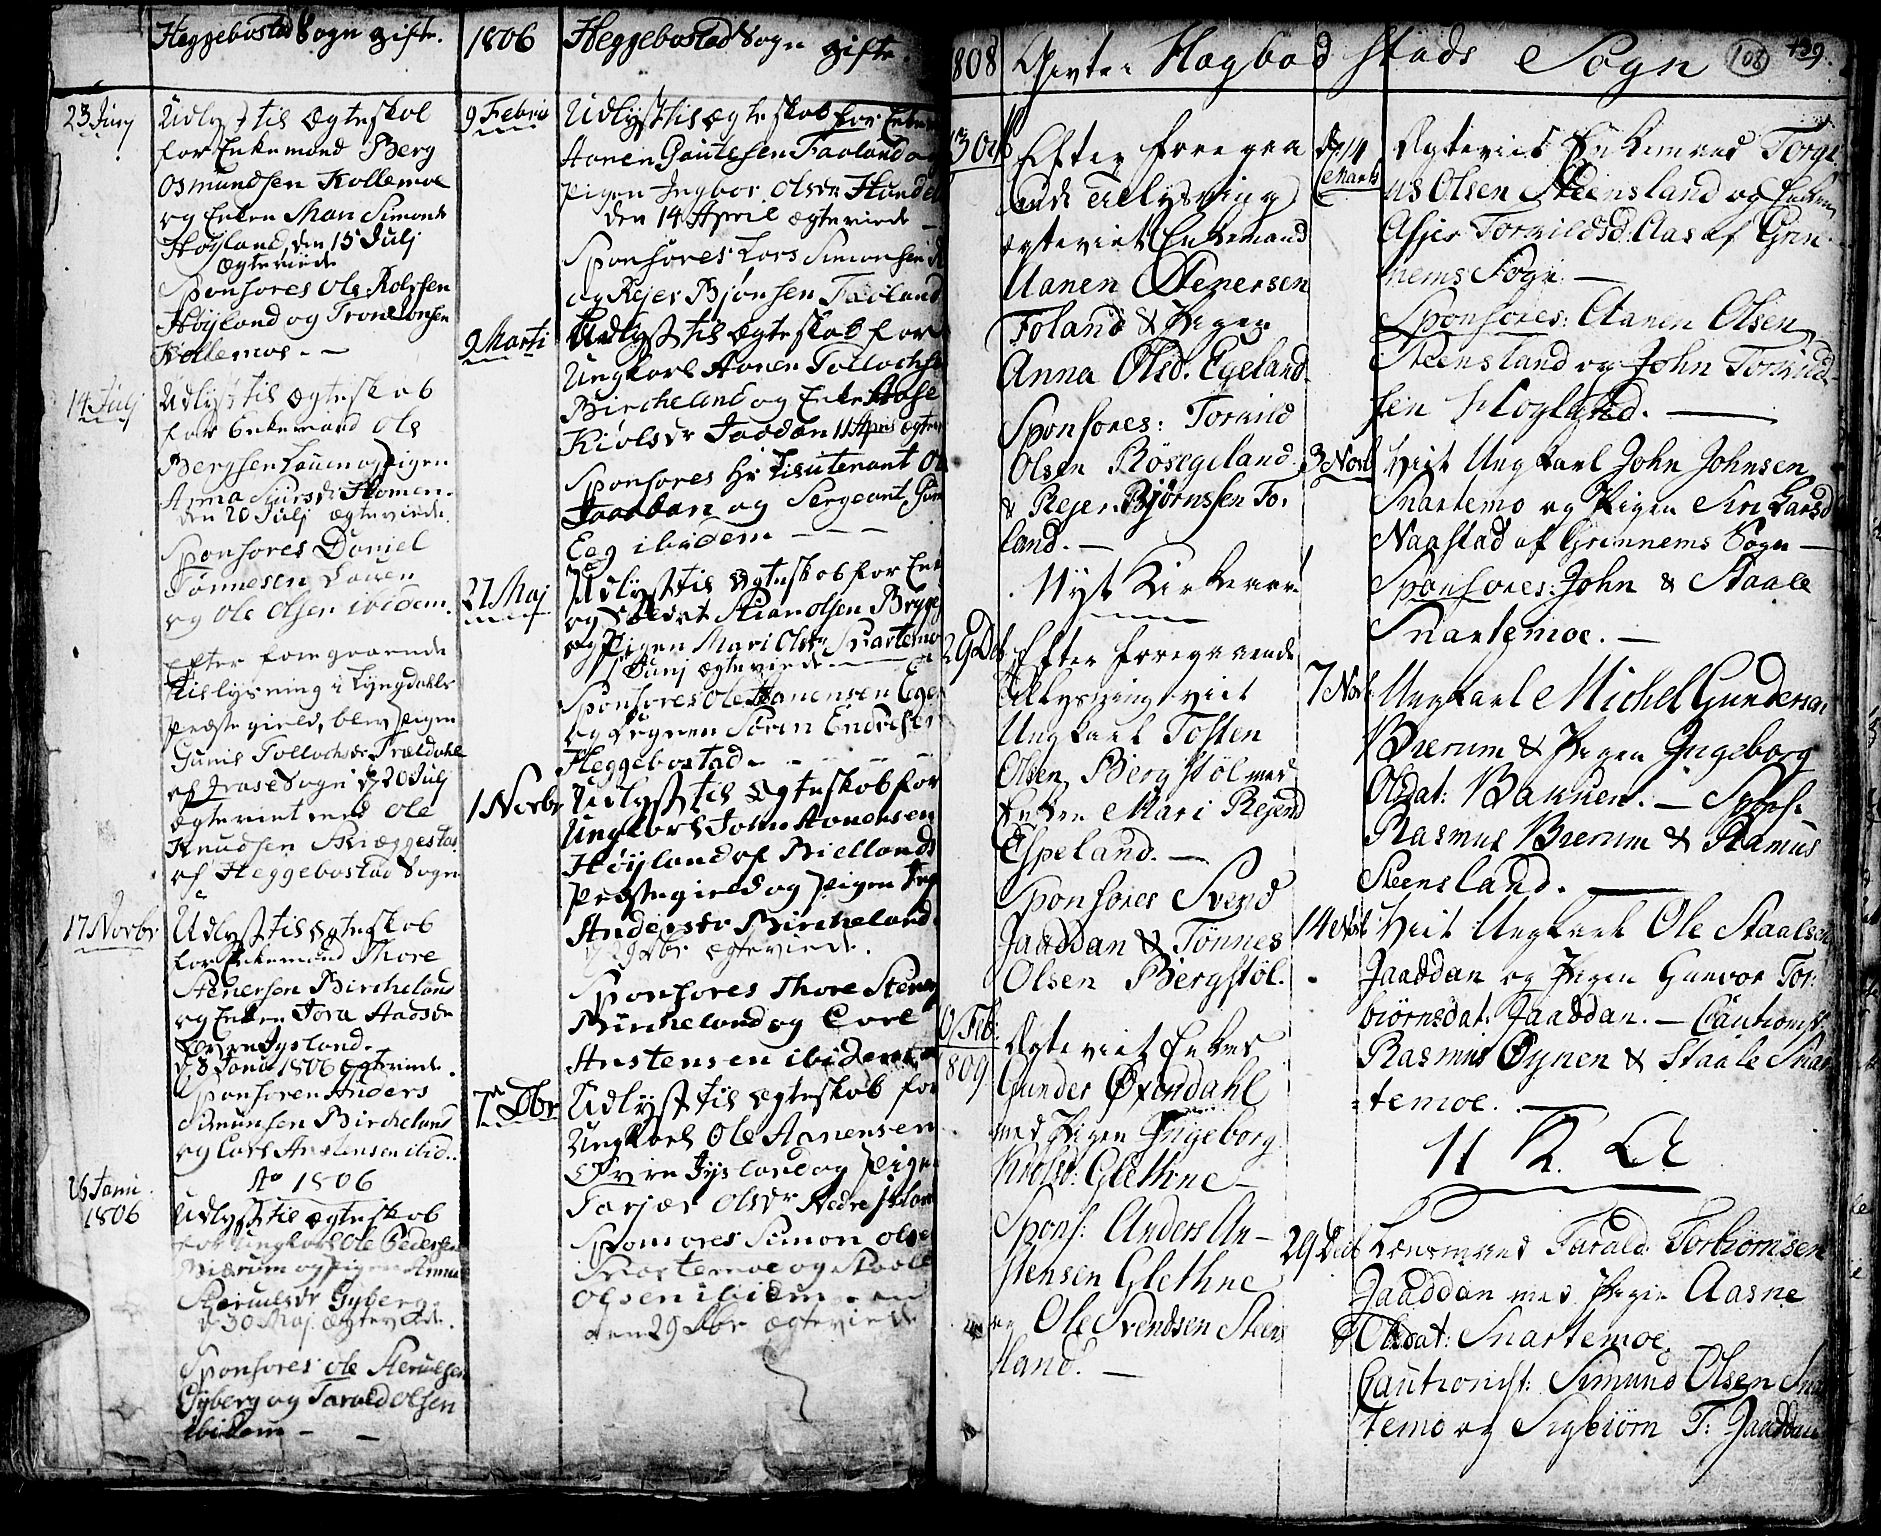 Heggebostad Sogn gifte.
23 Junj
Udlyst til Ægteskob
for Enkemand Berg
Osmundsen Kollemoe
og Enken Mari Simonds
Høyland, den 15 Julj
Ægteviede
Sponsores Ole Rolfsen
Høyland og Trond Tonsen
Kollemoe. -
14 Julj
Udlyst til Ægteskob
for Enkemand Ole
Bergsen Lauen og Pigen
Anna Siursdr Homen.
den 20 Julj ægteviede.
Sponsores Daniel
Tønnesen Lauen
og Ole Olsen ibidem.
Efter foregaaende
tillysning i Lyngdahls
Præstegield, blev Pigen
Gunild Tollochsdr Trældahl
af Qvase Sogn d 20 Julj
ægteviet med Ole
Knudsen Skieggestad
af Heggebostad Sogn
17 Novbr
Udlyst til Ægteskob
for Enkemand Thore
Stenersen Bircheland
og Enken Tora Aadsdr
Øvre Jysland.
d 8 Janu 1806 Ægteviede.
Sponsorer Anders
Simunsen Bircheland
og Carl Anstensen ibid..
Ao 1806
26 Janu
1806
Udlyst til Ægteskob
for Ungkarl Ole Pedersen
Birum og Pigen Anna
Steruelsdr Gyberg
d 30 Maj ægteviede.
Sponsores Ole Steruelsen
Gyberg og Tarald Olsen
ibidem - -
1806
Heggebostad Sogn gifte.
9 Febru
Udlyst til Ægteskob for Enkem
Aanen Gautesen Faaland og
Pigen Ingbor Olsdr Hundel
den 14 April ægteviede -
Sponsores Lars Simonsen
og Rejer Bjønsen Faaland
9 Marti
Udlyst til Ægteskob for
Ungkarl Aanen Tollochsen
Bircheland og Enke Aase
Kiølsdr Jaadan 11 April ægtev
Sponsores Hr Lieutenant
Jaadan og Sergeant Gun
Eeg ibidem - - -
27 Maj
Udlyst til Ægteskob for Enk
og Soldat Stian Olsen Brygge
og Pigen Mari Olsdr Snartemo
Junj ægteviede
Sponsores Ole Aanensen Ege
og Lægnen Søren Endresen
Heggebostad - - -
1 Novbr
Udlyst til Ægteskob for
Ungkarl John Aanensen
Høyland af Biellands
Præstegield og Pigen Ing
Andersdr Bircheland
d 29 Dbr ægteviede.
Sponsores Thore Stener
Bircheland og Carl
Anstensen ibidem
7 Dbr
Udlyst til Ægteskob for
Ungkarl Ole Aanensen
Øvre Jysland og Pigen
Tarjær Olsdr Nedre Jysland
Sponsores Simon Olse
Snartemoe og Staale
Olsen ibidem
den 29 Dbr ægteviede
808
Givte i Hægbostads Sogn
108
139.
Efter foregaa
ende Tillysning
ægteviet Enkemand
Aanen Stenersen
Foland & Pigen
Anna Olsd. Egeland.
Sponsores: Torkild
Olsen Røsegeland
& Rejer Bjørnssen Fo-
land. -
Nyt Kirkeaar
29 Dec
Efter foregaaende
Tillysning viet
Ungkarl Tosten
Olsen Bergstøl med
Enken Mari Rejersd
Espeland. -
Sponsores Svend
Jaaddan & Tønnes
Olsen Bergstøl.
Feb:
809
Ægteviet Enkem
Gunder Øfendahl
med Pigen Ingeborg
Kiølsd: Glethne -
Spons: Anders An-
stensen Glethne
og Ole Svendsen Steens
land. -
d 14
Marts
Ægteviet Enkemand Torge
us Olsen Steensland og Enken
Asjer Torkildsd. Aas af Grin
nems Sogn. -
Sponsores: Aanen Olsen
Steensland og John Torkild-
sen Hogland. -
3 Novb
Viet Ungkarl John Johnsen
Snartemo og Pigen Siri Larsd
Naastad af Grinnems Sogn -
Sponsores: John & Staale
Snartemoe. -
7 Novb
Ungkarl Michel Gundersen
Brerum & Pigen Ingeborg
Olsdat: Bakken. - Spons.
Rasmus Brerum & Ramus
Steensland. -
14 Novb
Viet Ungkarl Ole Staalsen
Jaaddan og Pigen Gunvor Tor-
biørnsdat: Jaaddan. - Cautionist:
Rasmus Øynen & Staale Snar
temoe. -
N K A
29 Decb
Lensmand Tarald Torbiørnsen
Jaaddan med Pigen Aasne
Olsdat: Snartemoe
Cautionist: Simund Olsen Snar
temo og Sigbiørn T: Jaaddan